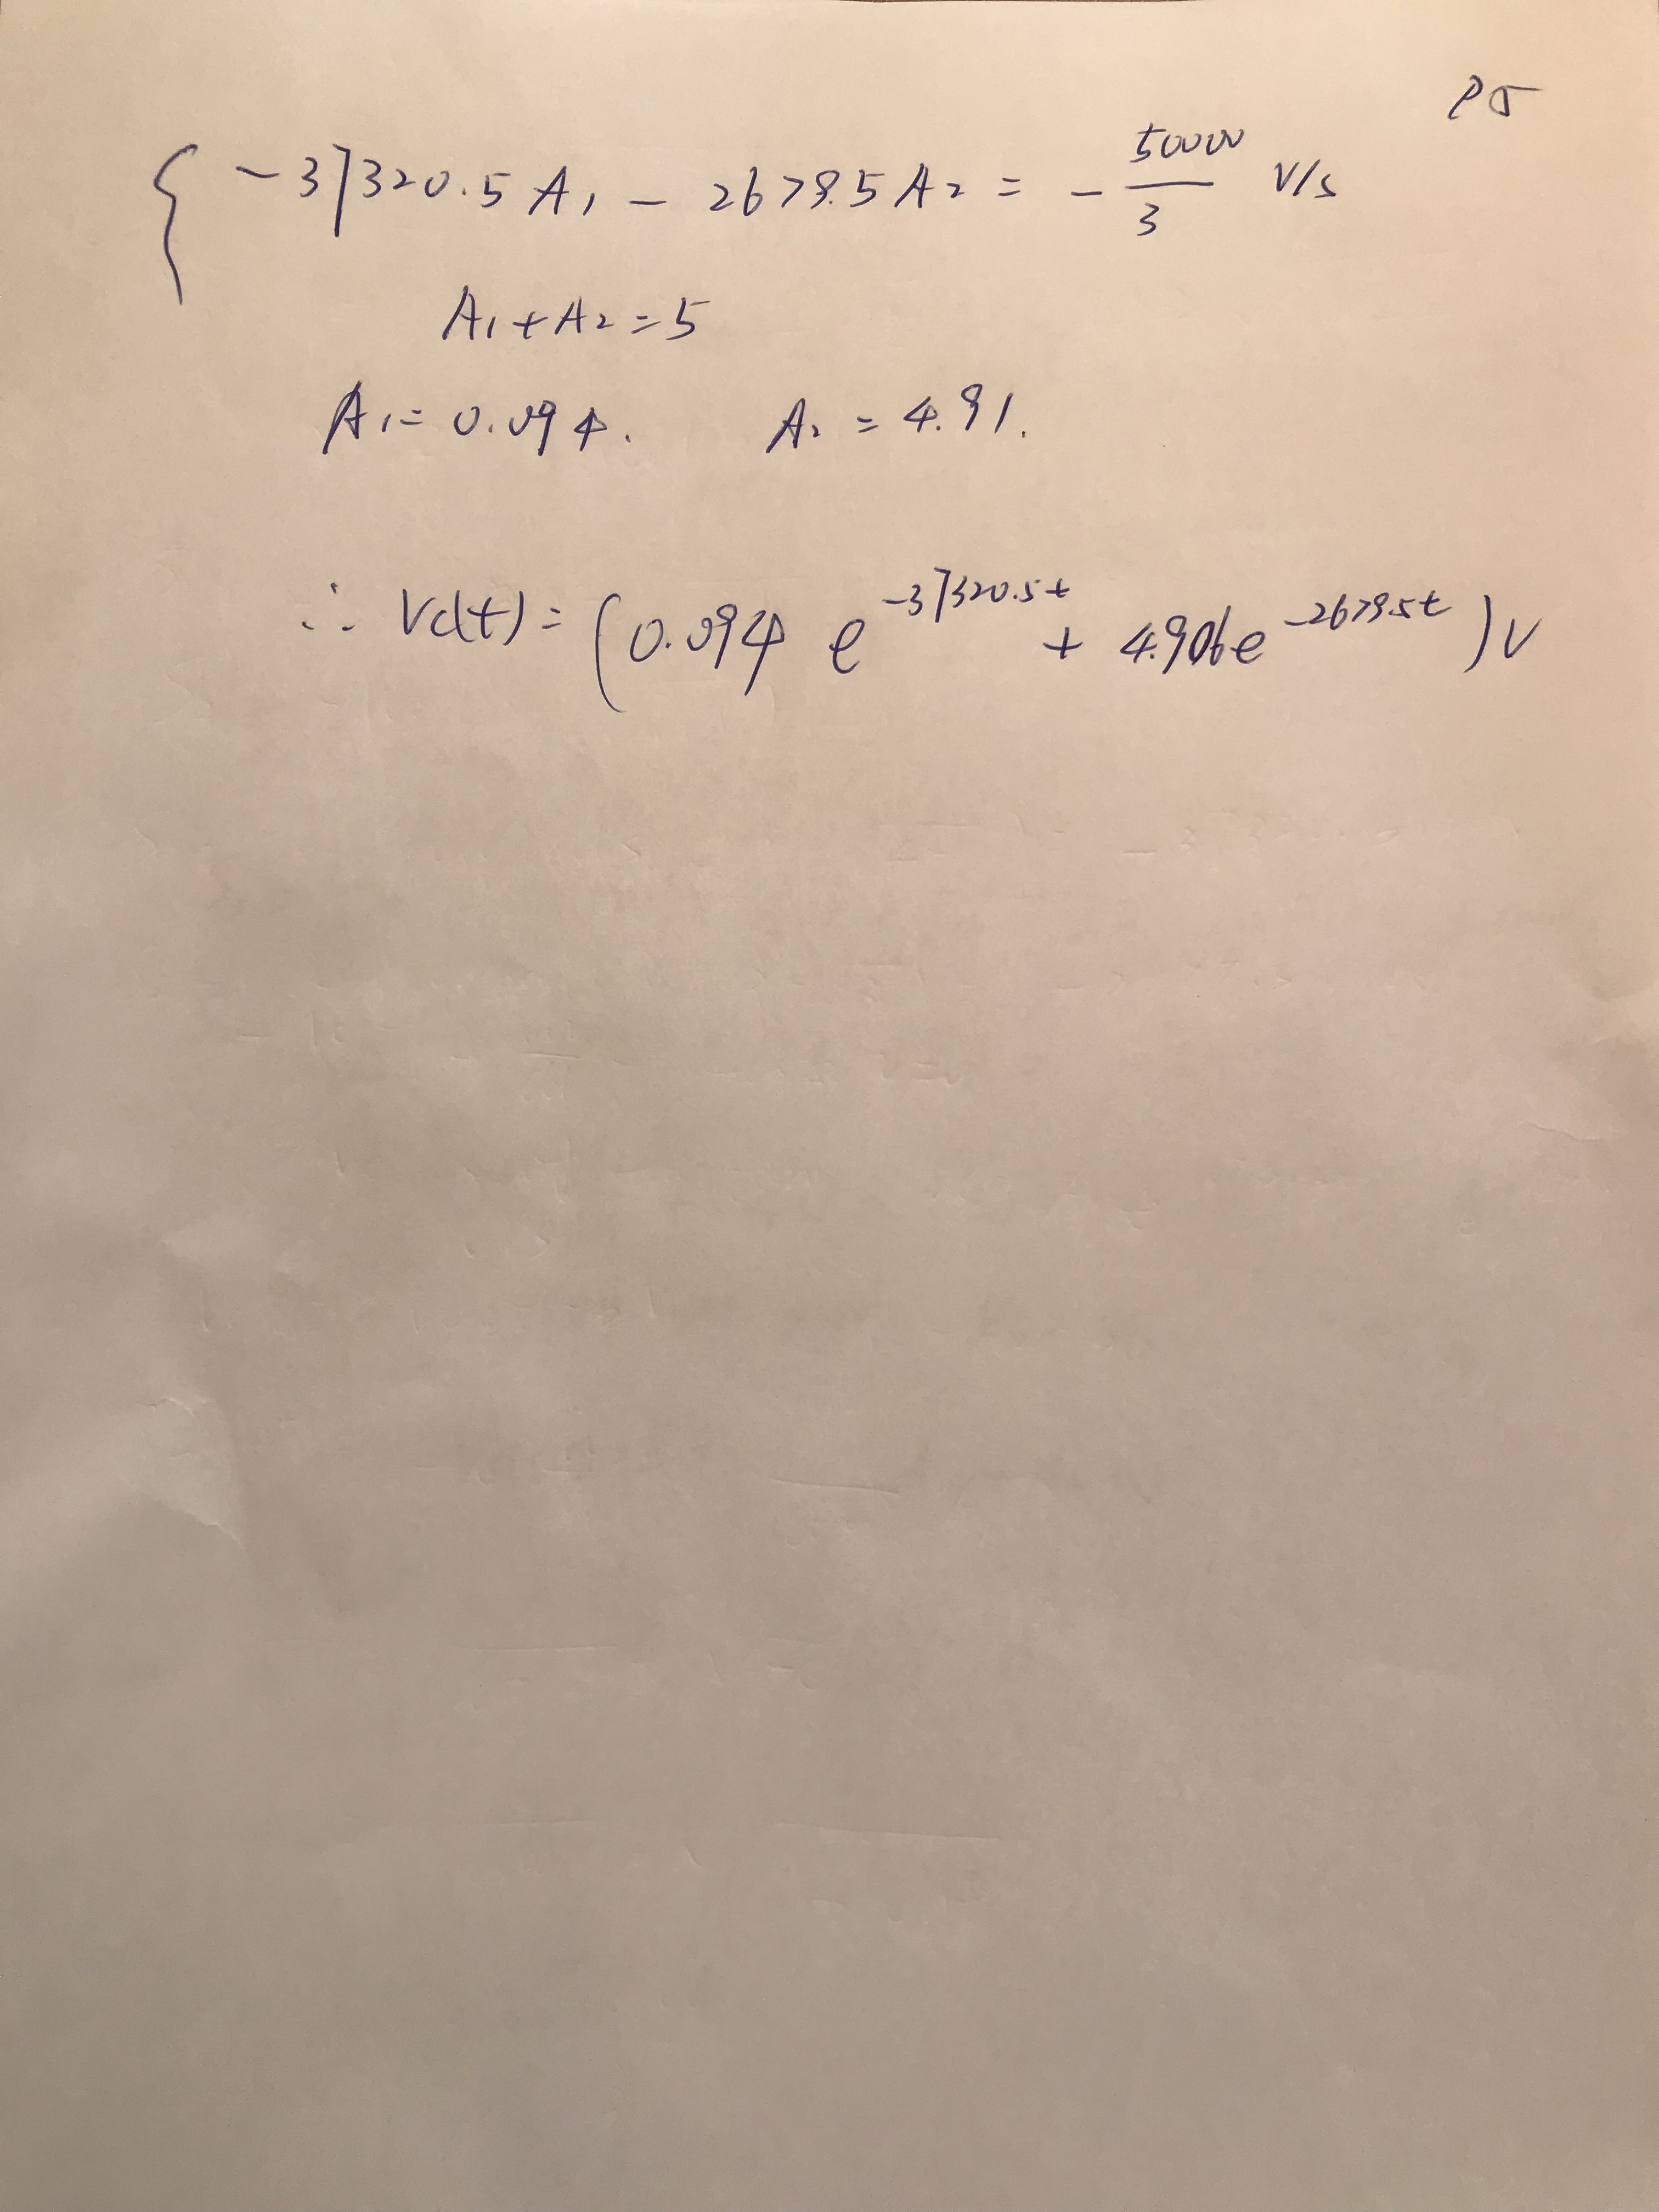 P5
{ -37320.5 A₁ - 2679.5 A₂ = - 50000/3 V/s
A₁ + A₂ = 5
A₁ = 0.094. A₂ = 4.91.
∴ Vc(t) = (0.094 e^{-37320.5t} + 4.906e^{-2679.5t}) V